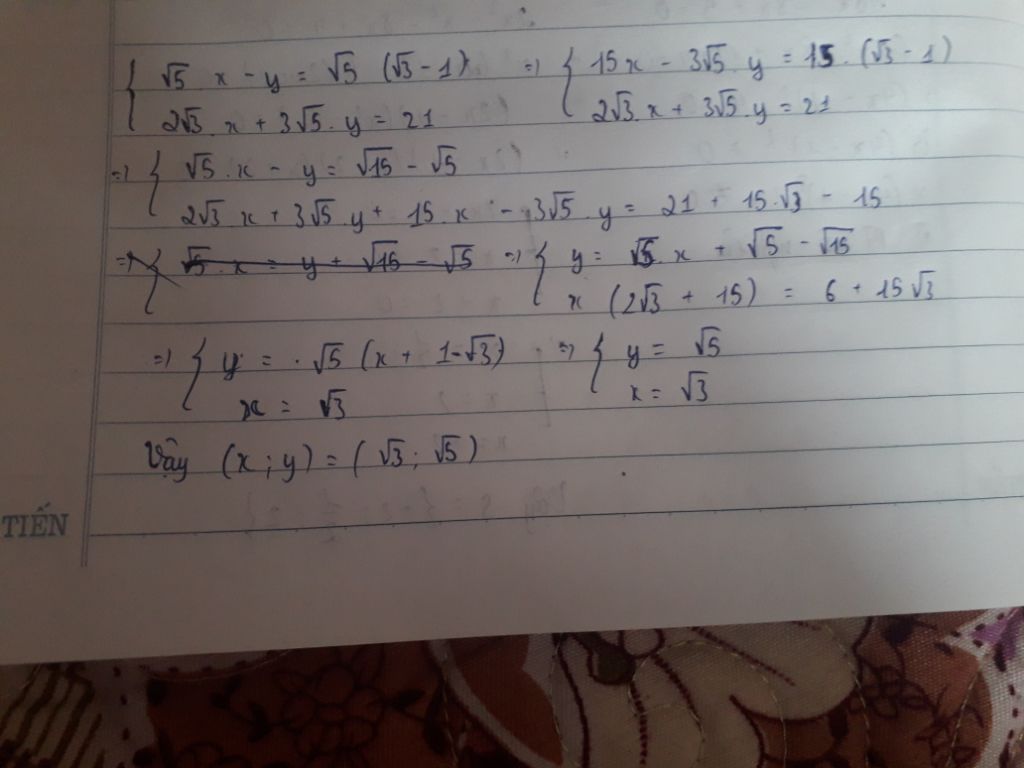 { √5 x - y = √5 (√3 - 1) => { 15x - 3√5. y = 15. (√3 - 1)
2√3. x + 3√5. y = 21 2√3. x + 3√5. y = 21
=> { √5. x - y = √15 - √5
2√3 x + 3√5 y + 15. x - 3√5. y = 21 + 15.√3 - 15
=> { √5. x = y + √15 - √5 => { y = √5. x + √5 - √15
x (2√3 + 15) = 6 + 15√3
=> { y = √5 (x + 1-√3) => { y = √5
x = √3 x = √3
Vậy (x ; y) = (√3 ; √5)
TIẾN